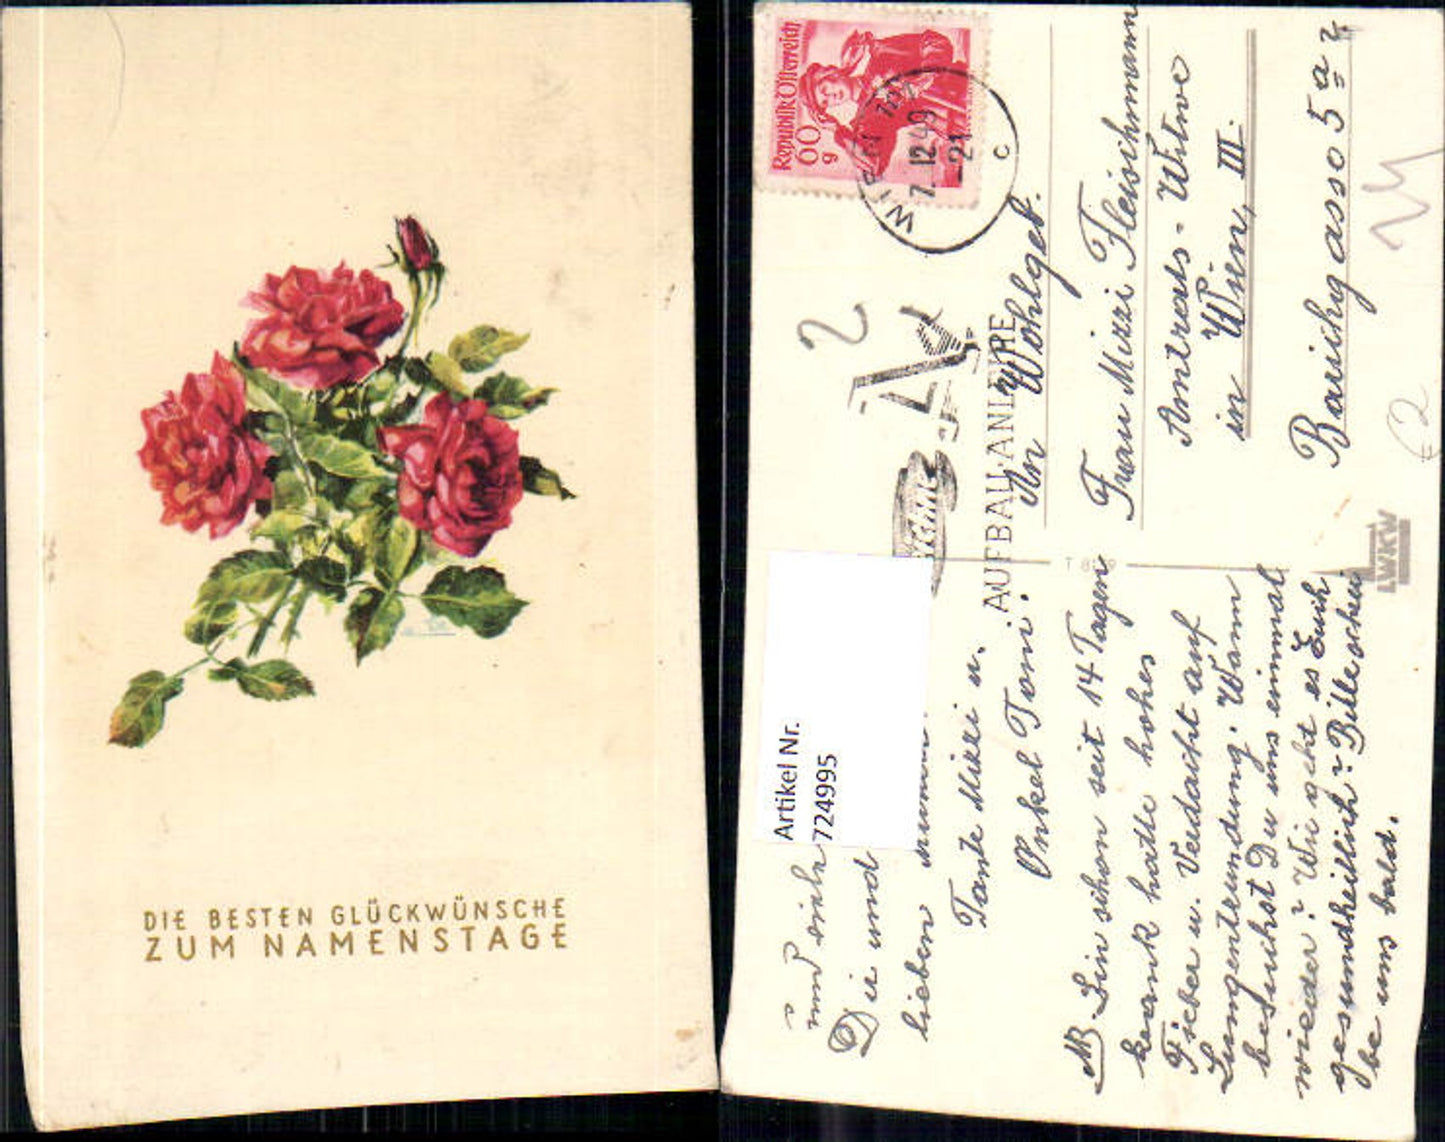 DIE BESTEN GLÜCKWÜNSCHE
ZUM NAMENSTAGE
Republik Österreich
60
g
WIEN
7. 12.49
-21
c
2
AUFBAUANLEIHE
An Wohlgeb.
Frau Mizzi Fleischmann
Amtrats-Witwe
in Wien, III.
Barichgasse 5a
2
€2
LWKW
T
Artikel Nr.
724995
und viele
Dir und
lieben
Tante Mizzi u.
Onkel Toni.
NB. Bin schon seit 14 Tagen
krank hatte hohes
Fieber u. Verdacht auf
Lungentzündung. Wann
besuchst Du uns einmal
wieder? Wie geht es Euch
gesundheitlich? Bitte schrei
be uns bald.